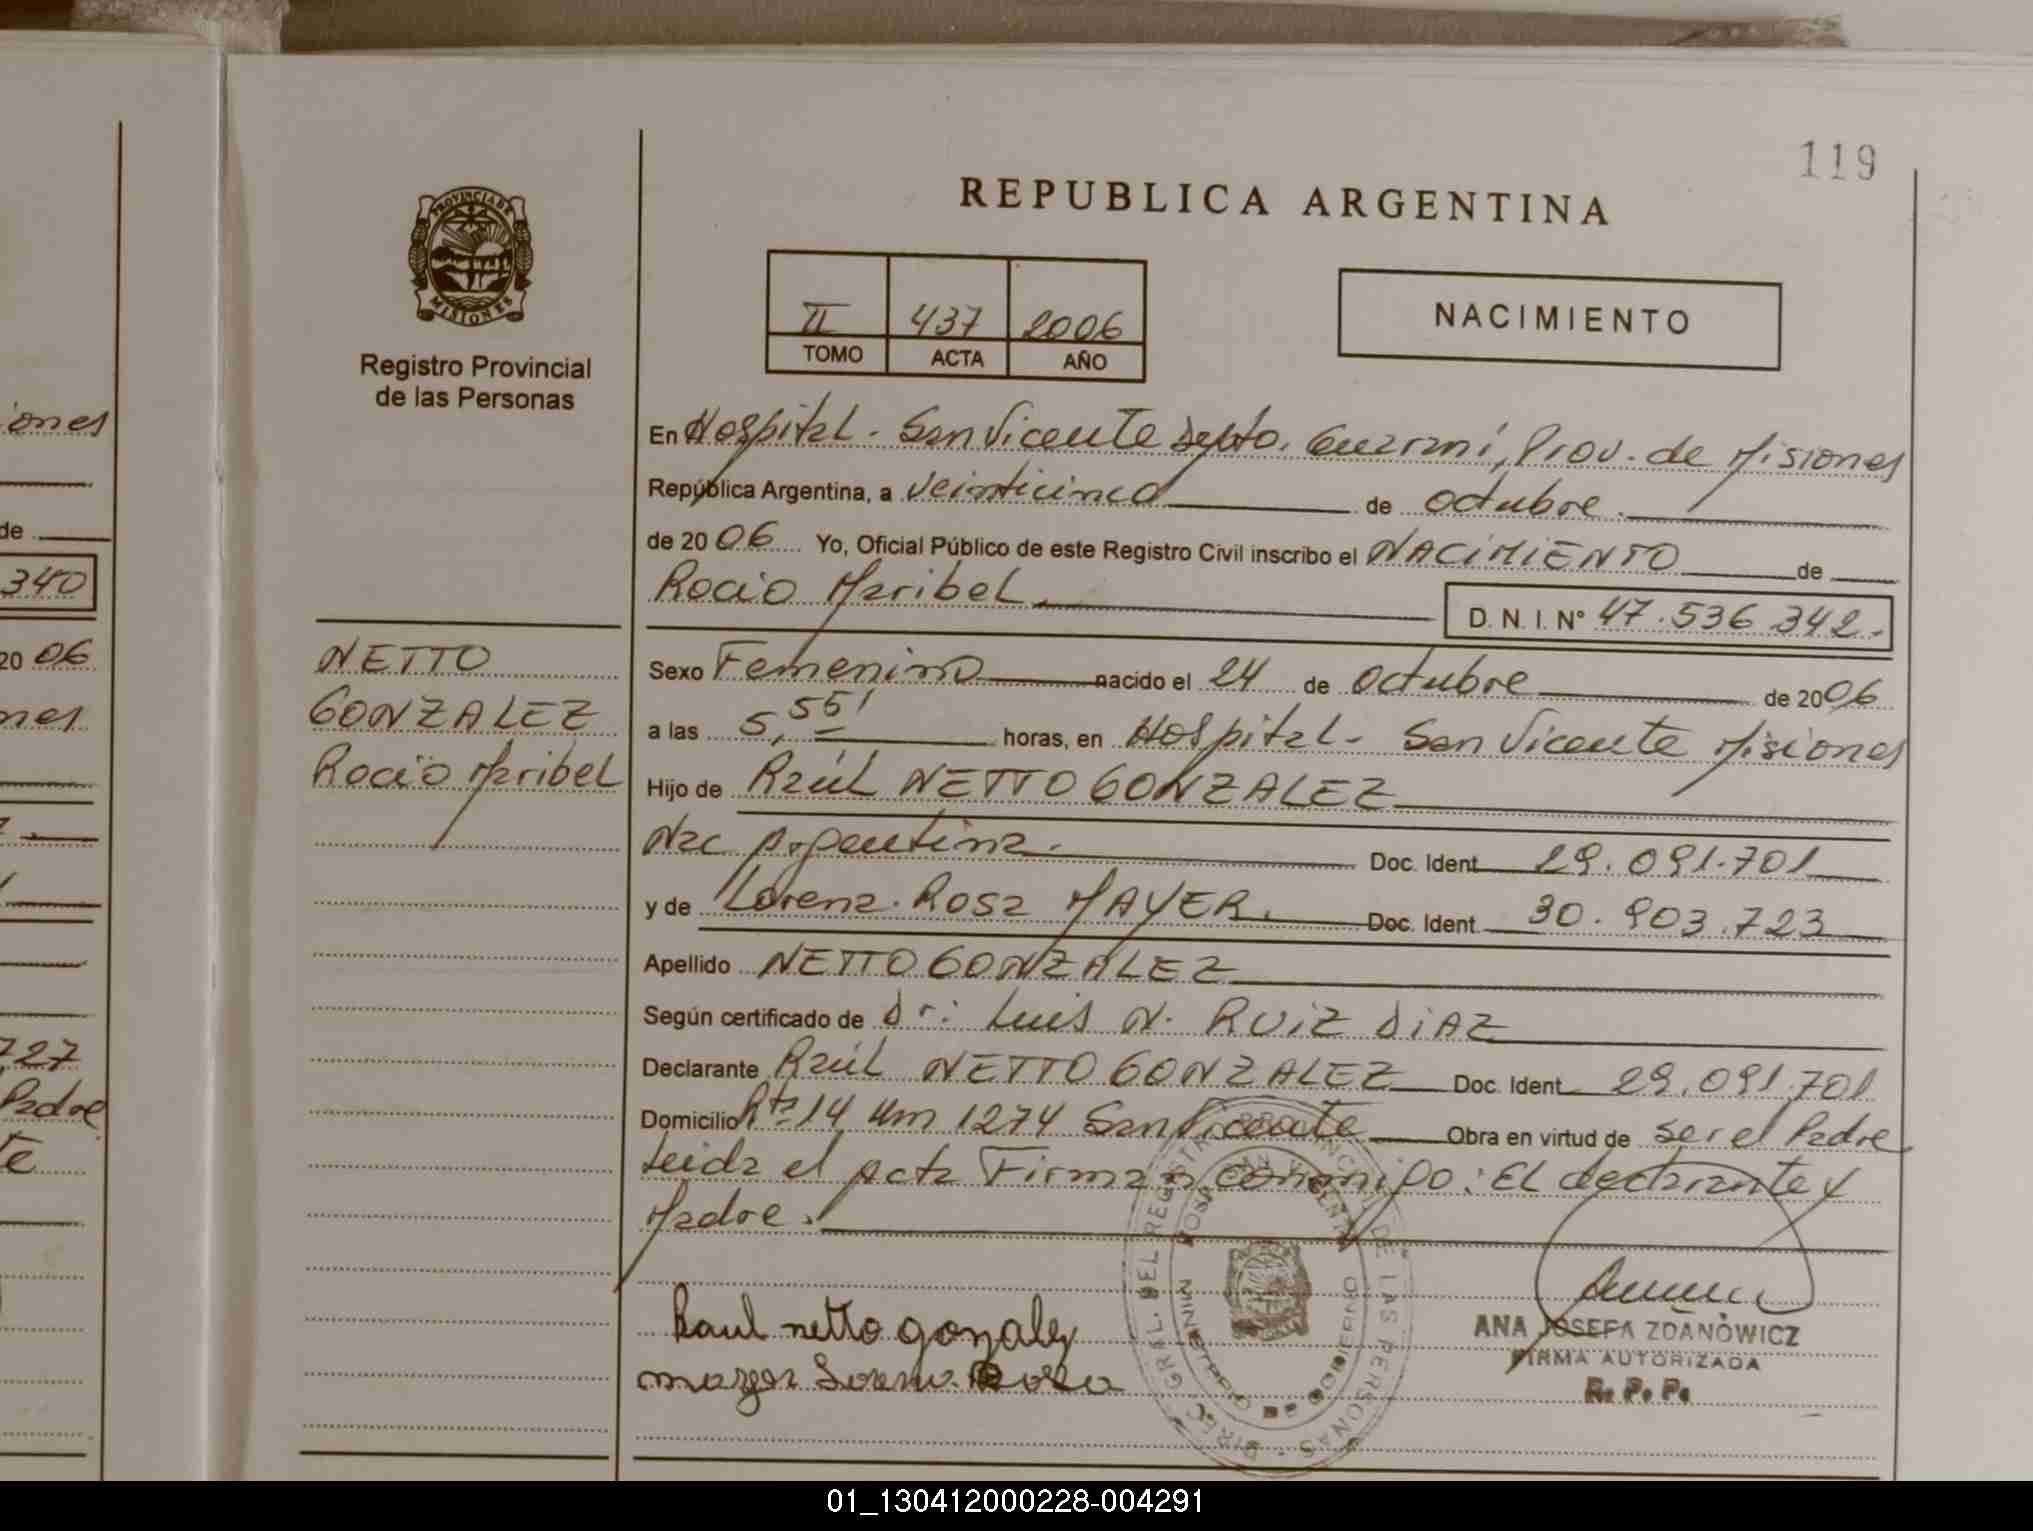 119
REPUBLICA ARGENTINA
PROVINCIA DE
MISIONES
Registro Provincial
de las Personas
II 437 2006
TOMO ACTA AÑO
NACIMIENTO
En Hospital - San Vicente Depto. Guaraní, Prov. de Misiones
República Argentina, a veinticinco de octubre
de 2006 Yo, Oficial Público de este Registro Civil inscribo el NACIMIENTO de
Rocio Maribel. D. N. I. N° 47.536 342.-
NETTO
GONZALEZ
Rocio Maribel
Sexo Femenino nacido el 24 de octubre de 2006
a las 5,55' horas, en Hospital - San Vicente Misiones
Hijo de Raúl NETTO GONZALEZ
Nac Argentina. Doc. Ident 29.091.701
y de Lorena Rosa MAYER. Doc. Ident. 30.903.723
Apellido NETTO GONZALEZ
Según certificado de Dr: Luis N. RUIZ DIAZ
Declarante Raúl NETTO GONZALEZ Doc. Ident 29.091.701
Domicilio Rta 14 Km 1274 San Vicente Obra en virtud de ser el Padre
Leida el Acta Firman conmigo: El declarante y
Madre.
Raul netto gonzalez
mayer Lorena Rosa
ANA JOSEFA ZDANOWICZ
FIRMA AUTORIZADA
R. P. P.
iones
de
340
20 06
nes
727
Padre
te
01_130412000228-004291